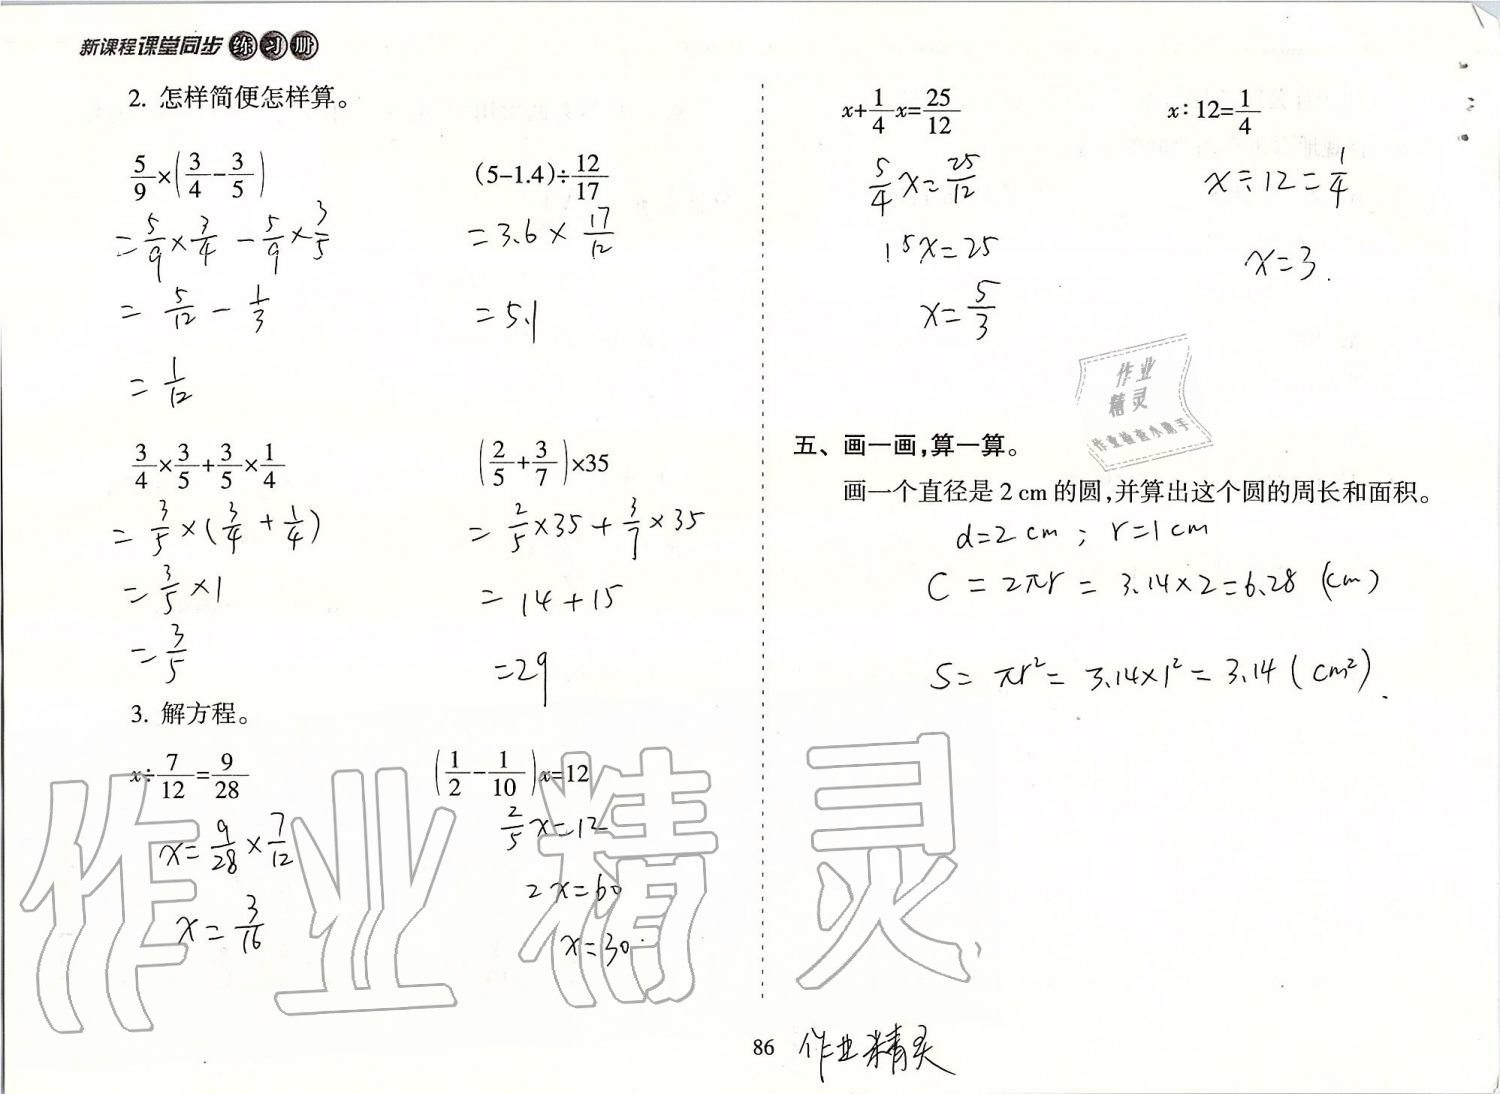 新课程课堂同步练习册
2. 怎样简便怎样算。
5/9×(3/4-3/5)
=5/9×3/4-5/9×3/5
=5/12-1/3
=1/12
(5-1.4)÷12/17
=3.6×17/12
=5.1
3/4×3/5+3/5×1/4
=3/5×(3/4+1/4)
=3/5×1
=3/5
(2/5+3/7)×35
=2/5×35+3/7×35
=14+15
=29
3. 解方程。
x÷7/12=9/28
x=9/28×7/12
x=3/16
(1/2-1/10)x=12
2/5x=12
2x=60
x=30.
x+1/4x=25/12
5/4x=25/12
15x=25
x=5/3
x∶12=1/4
x÷12=1/4
x=3.
五、画一画,算一算。
画一个直径是2 cm的圆,并算出这个圆的周长和面积。
d=2 cm ; r=1 cm
C=2πr=3.14×2=6.28 (cm)
S=πr²=3.14×1²=3.14 (cm²).
作业
精灵
作业检查小助手
作业精灵
86
作业精灵